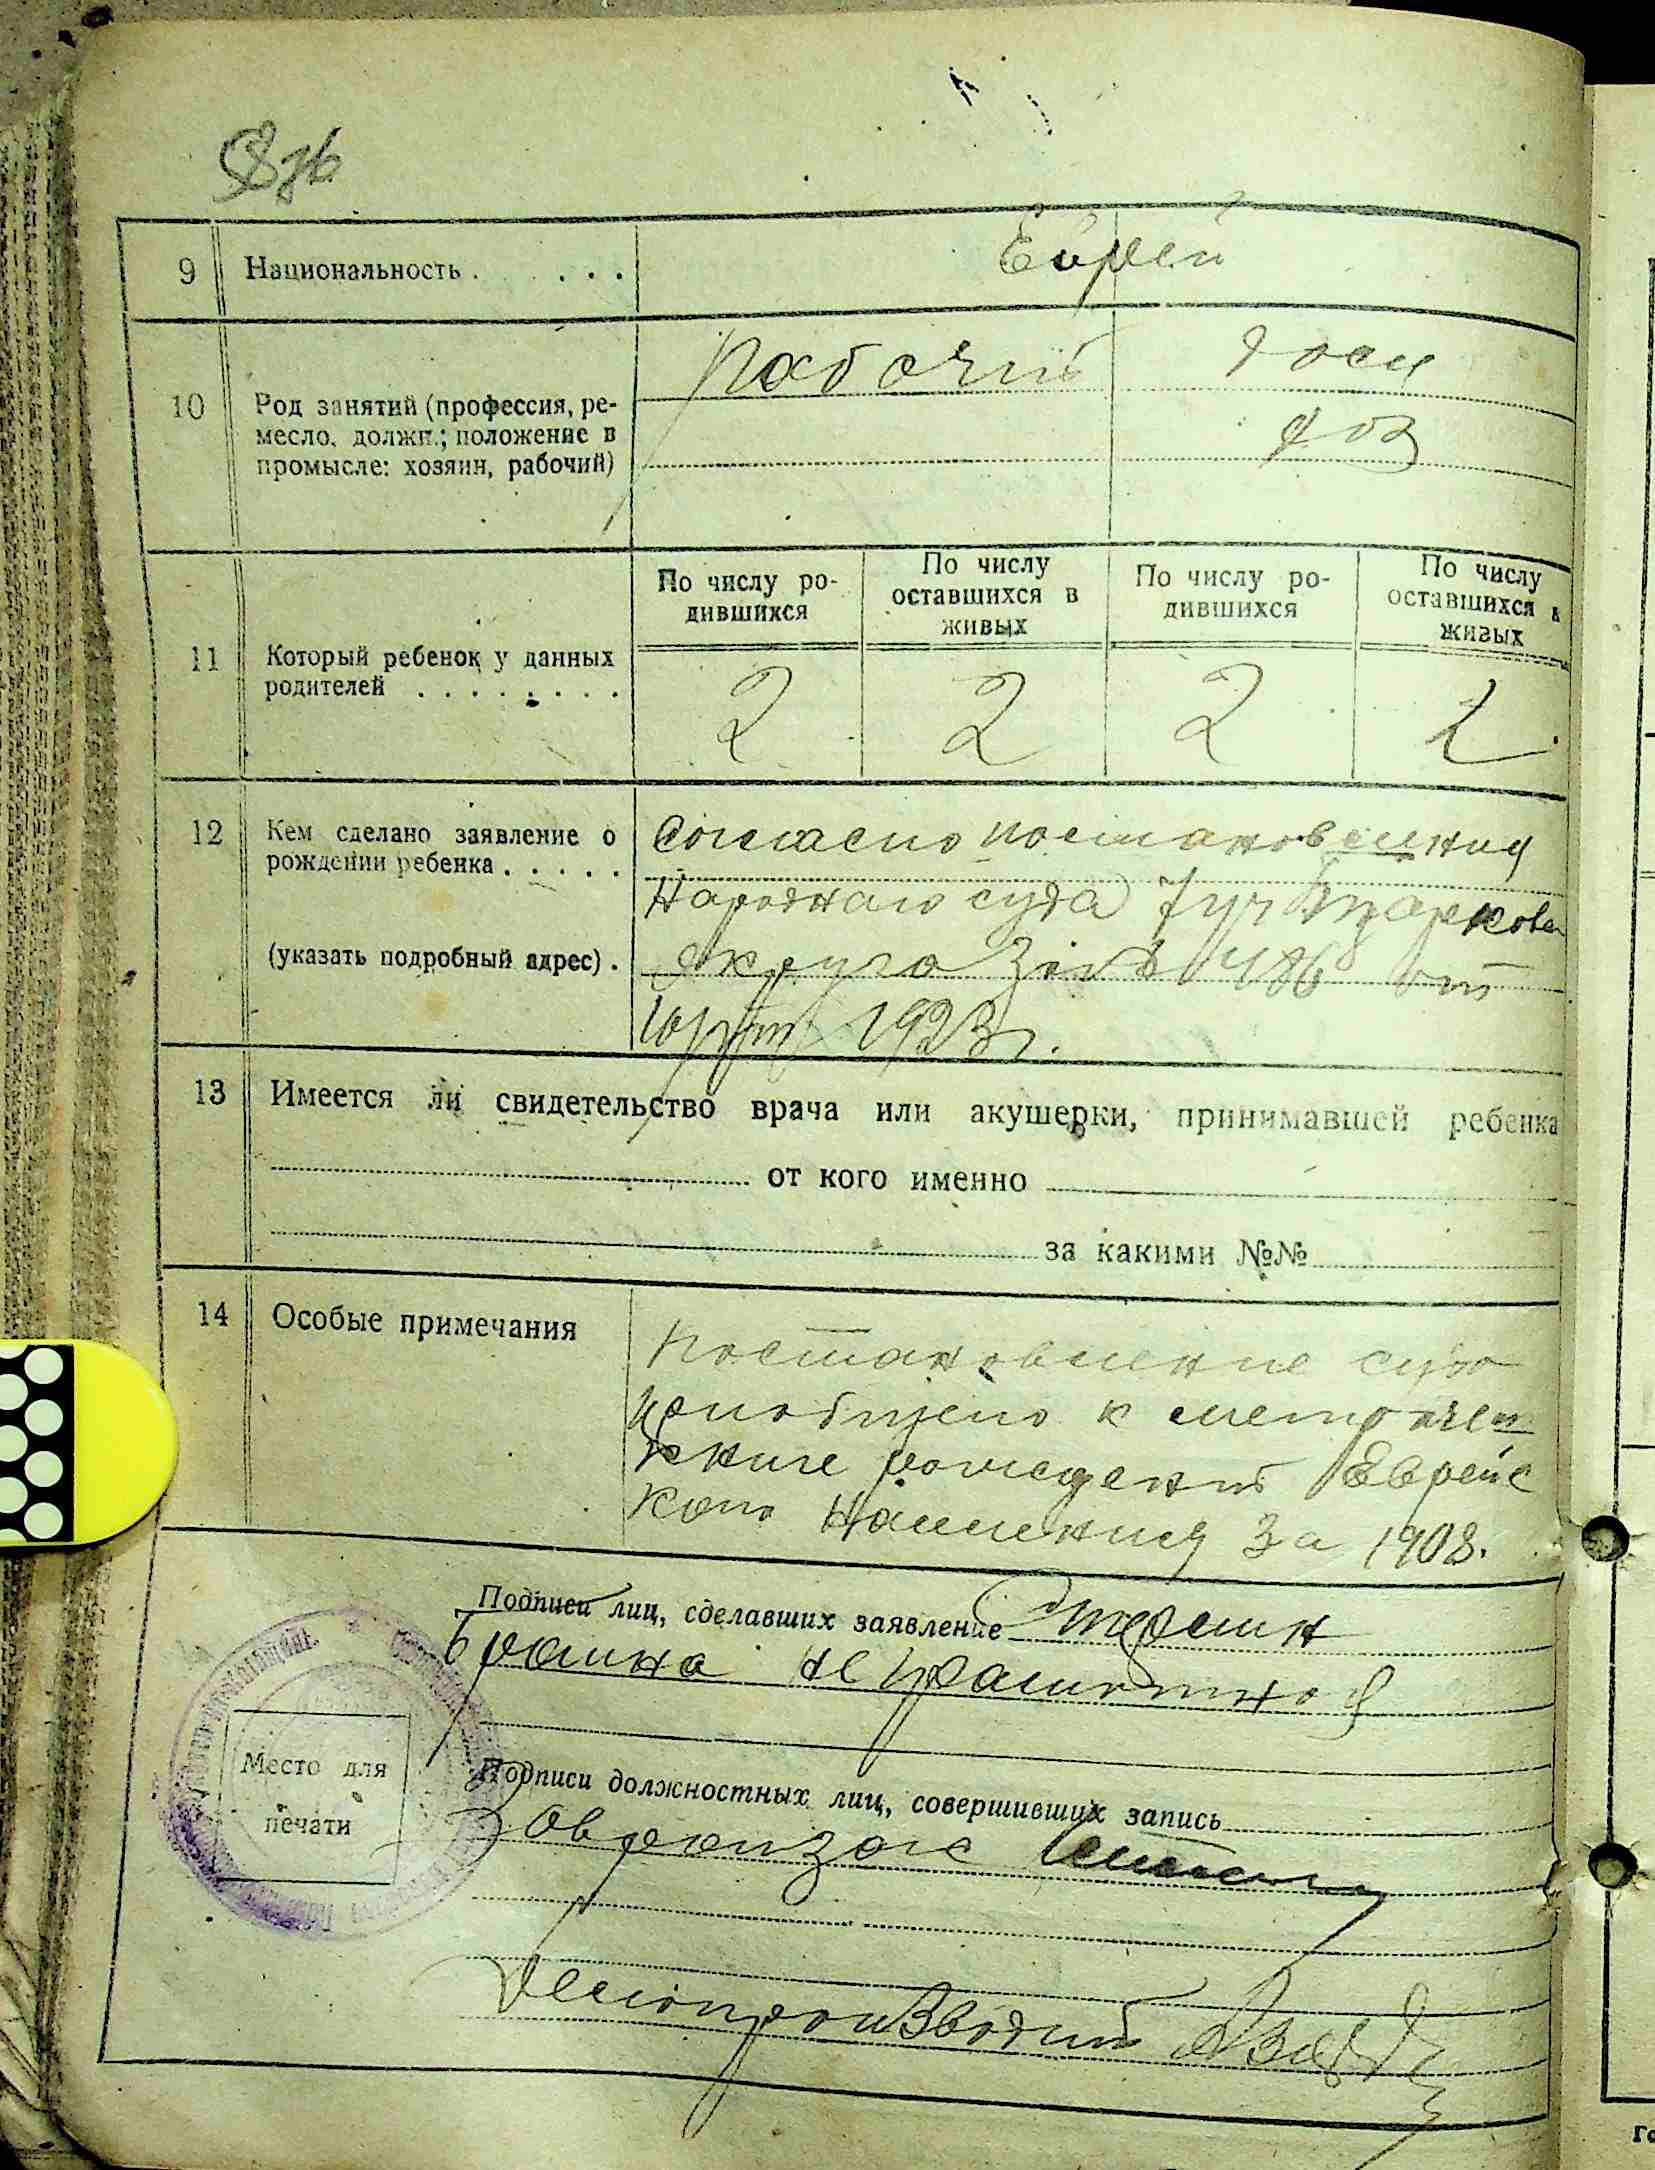 9 Национальность . . . . Еврей
10 Род занятий (профессия, ре-
месло, должн.; положение в
промысле: хозяин, рабочий)
Рабочий
дом
хоз
11 Который ребенок у данных
родителей . . . . . . . .
По числу ро-
дившихся
По числу
оставшихся в
живых
По числу ро-
дившихся
По числу
оставшихся в
живых
2 2 2 2
12 Кем сделано заявление о
рождении ребенка . . . . .
(указать подробный адрес) .
Согласно постановления
Народнаго суда 7 уч
округа 486 от
1923 г.
13 Имеется ли свидетельство врача или акушерки, принимавшей ребенка
от кого именно
за какими №№
14 Особые примечания
Постановление суда
приобщено к метричес
книге рождений Еврейс
кого Населения за 1908.
Подписи лиц, сделавших заявление
неграмотная
Место для
печати
Подписи должностных лиц, совершивших запись
Завранзагс
Делопроизводит